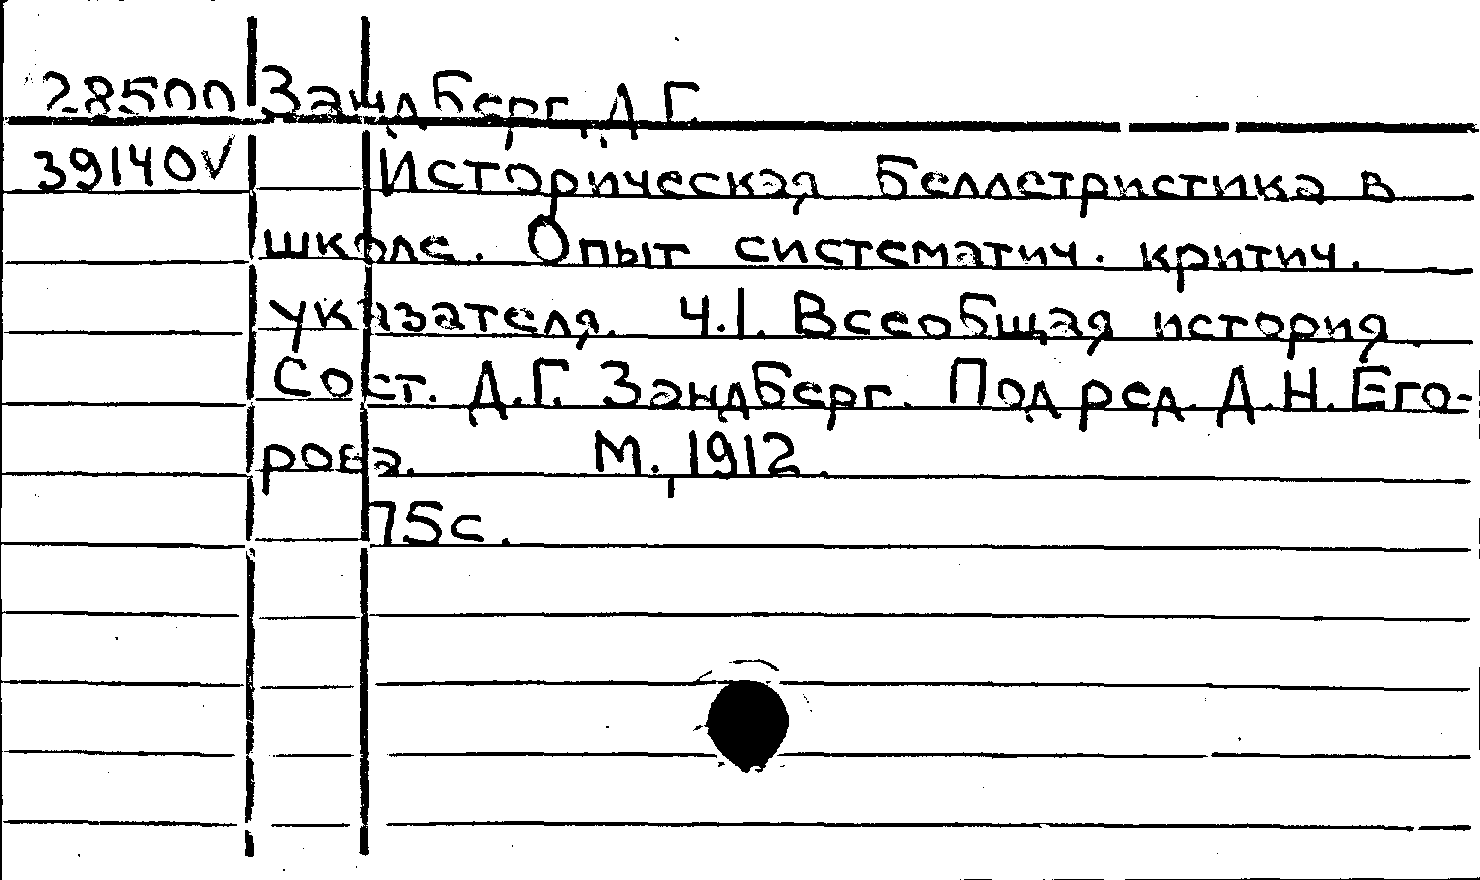 28500 Зандберг, Д.Г.
39140V Историческая беллетристика в
школе. Опыт систематич. критич.
указателя. Ч.I. Всеобщая история.
Сост. Д.Г. Зандберг. Под ред. Д.Н. Его-
рова. М., 1912.
75с.